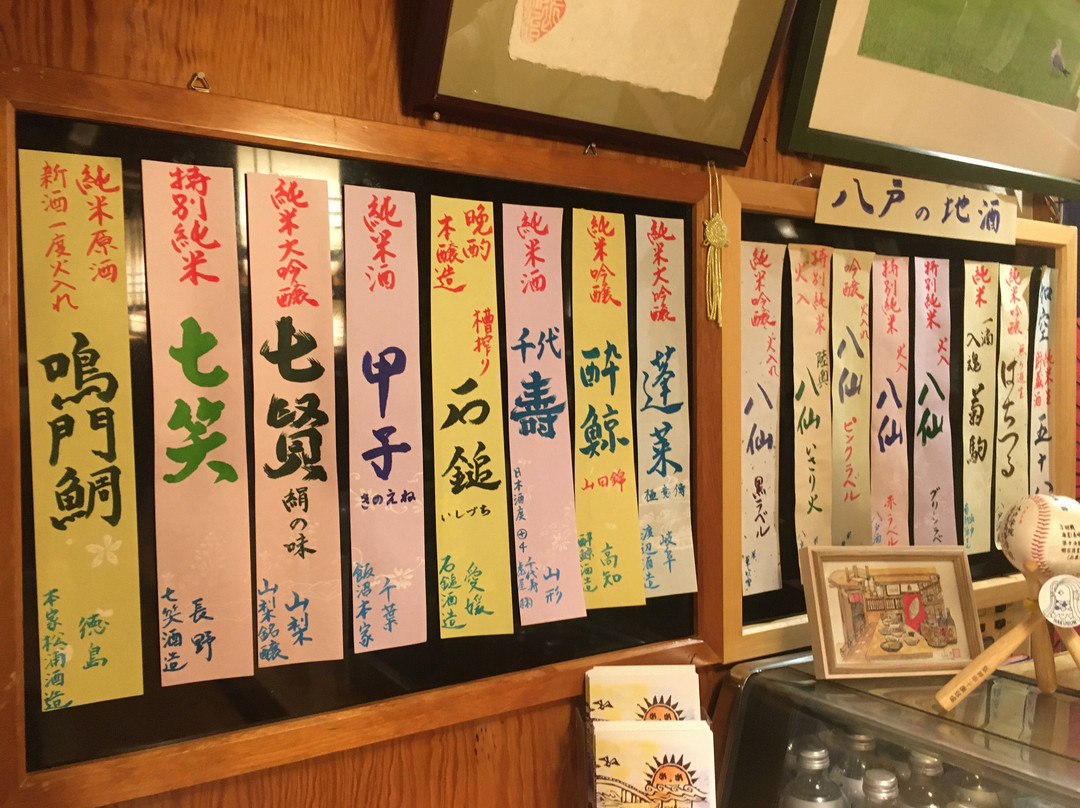 純米原酒
新酒一度火入れ
鳴門鯛
徳島
本家松浦酒造
特別純米
七笑
長野
七笑酒造
純米大吟醸
七賢
絹の味
山梨
山梨銘醸
純米酒
甲子
きのえね
千葉
飯沼本家
晩酌
本醸造
槽搾り
石鎚
いしづち
愛媛
石鎚酒造
純米酒
千代
寿
日本酒度⊕4
山形
純米吟醸
酔鯨
山田錦
高知
酔鯨酒造
純米大吟醸
蓬莱
岐阜
渡辺酒造
八戸の地酒
純米吟醸
火入れ
八仙
黒ラベル
特別純米
火入
陸奥
八仙
いさり火
吟醸
火入れ
八仙
ピンクラベル
特別純米
火入
八仙
赤ラベル
特別純米
火入
八仙
グリーンラベ
純米
一滴
入魂
菊駒
純米吟醸
はちつる